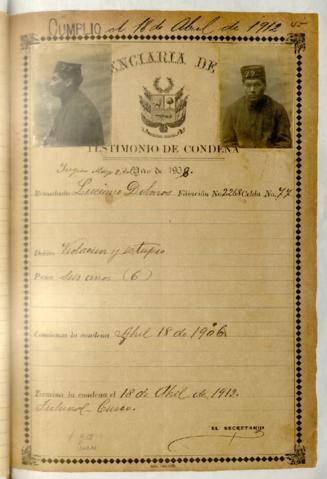 CUMPLIO el 18 de Abril de 1912
45
ENCIARIA DE
TESTIMONIO DE CONDENA
de 1908.
Rematado Luciano Dolores Filiación No. 2268 Celda No. 77
Delito Violacion y estupro
Pena seis años (6)
Comienza la condena Abril 18 de 1906
Termina la condena el 18 de Abril de 1912.
Tribunal Cuzco.
EL SECRETARIO